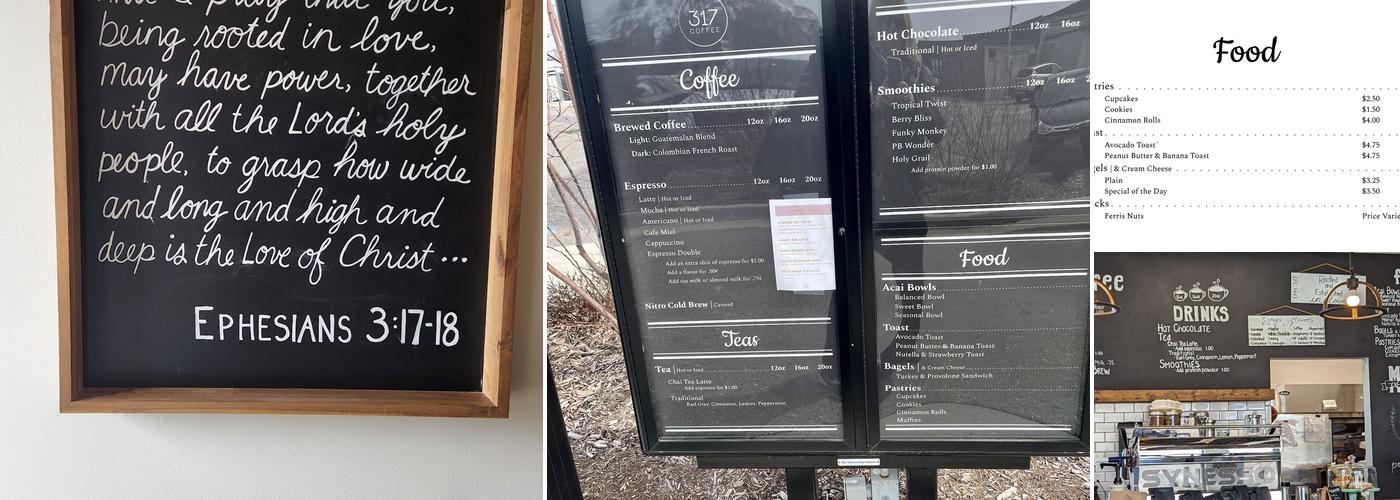 being rooted in love,
may have power, together
with all the Lord's holy
people, to grasp how wide
and long and high and
deep is the Love of Christ...
EPHESIANS 3:17-18
317
COFFEE
Coffee
Brewed Coffee 12oz 16oz 20oz
Light: Guatemalan Blend
Dark: Colombian French Roast
Espresso 12oz 16oz 20oz
Latte | Hot or Iced
Mocha | Hot or Iced
Americano | Hot or Iced
Cafe Miel
Cappuccino
Espresso Double
Add an extra shot of espresso for $1.00
Add a flavor for .50¢
Add oat milk or almond milk for .75¢
Nitro Cold Brew | Canned
Teas
Tea | Hot or Iced 12oz 16oz 20oz
Chai Tea Latte
Add espresso for $1.00
Traditional
Earl Grey, Cinnamon, Lemon, Peppermint
Hot Chocolate 12oz 16oz
Traditional | Hot or Iced
Smoothies 12oz 16oz 2
Tropical Twist
Berry Bliss
Funky Monkey
PB Wonder
Holy Grail
Add protein powder for $1.00
Food
Acai Bowls
Balanced Bowl
Sweet Bowl
Seasonal Bowl
Toast
Avocado Toast
Peanut Butter & Banana Toast
Nutella & Strawberry Toast
Bagels | & Cream Cheese
Turkey & Provolone Sandwich
Pastries
Cupcakes
Cookies
Cinnamon Rolls
Muffins
Food
tries
Cupcakes $2.50
Cookies $1.50
Cinnamon Rolls $4.00
ast
Avocado Toast $4.75
Peanut Butter & Banana Toast $4.75
gels | & Cream Cheese
Plain $3.25
Special of the Day $3.50
cks
Ferris Nuts Price Varie
DRINKS
Hot Chocolate
Tea
Chai Tea Latte
Add espresso 1.00
Traditional
Earl Grey, Cinnamon, Lemon, Peppermint
Smoothies
Add protein powder 1.00
Rooted
and
SYNESSO